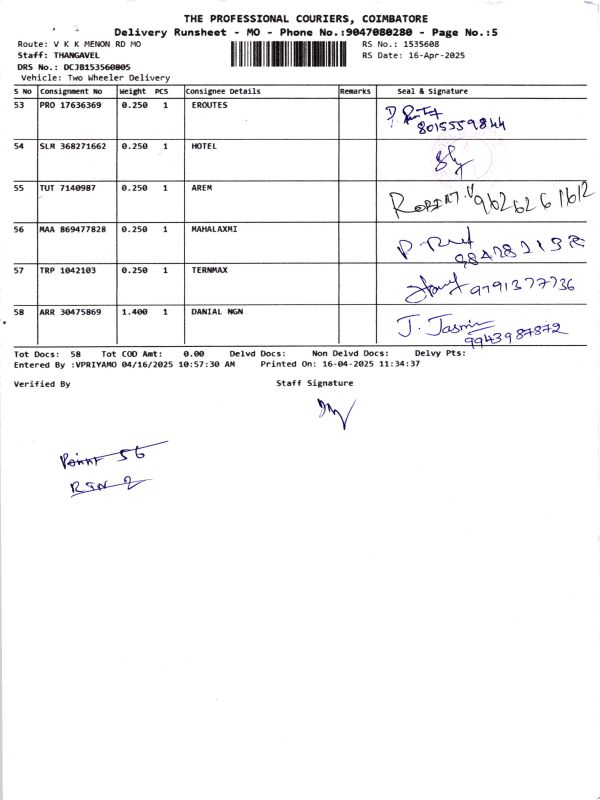 THE PROFESSIONAL COURIERS, COIMBATORE
Delivery Runsheet - MO - Phone No.:9047080280 - Page No.:5
Route: V K K MENON RD MO RS No.: 1535608
Staff: THANGAVEL RS Date: 16-Apr-2025
DRS No.: DCJB153560805
Vehicle: Two Wheeler Delivery
S No Consignment No Weight PCS Consignee Details Remarks Seal & Signature
53 PRO 17636369 0.250 1 EROUTES
8015559844
54 SLM 368271662 0.250 1 HOTEL
55 TUT 7140987 0.250 1 AREM
9626261612
56 MAA 869477828 0.250 1 MAHALAXMI
57 TRP 1042103 0.250 1 TERNMAX
9791377736
58 ARR 30475869 1.400 1 DANIAL NGN J. Jasmin
9943987872
Tot Docs: 58 Tot COD Amt: 0.00 Delvd Docs: Non Delvd Docs: Delvy Pts:
Entered By :VPRIYAMO 04/16/2025 10:57:30 AM Printed On: 16-04-2025 11:34:37
Verified By Staff Signature
Point 56
RTN 2